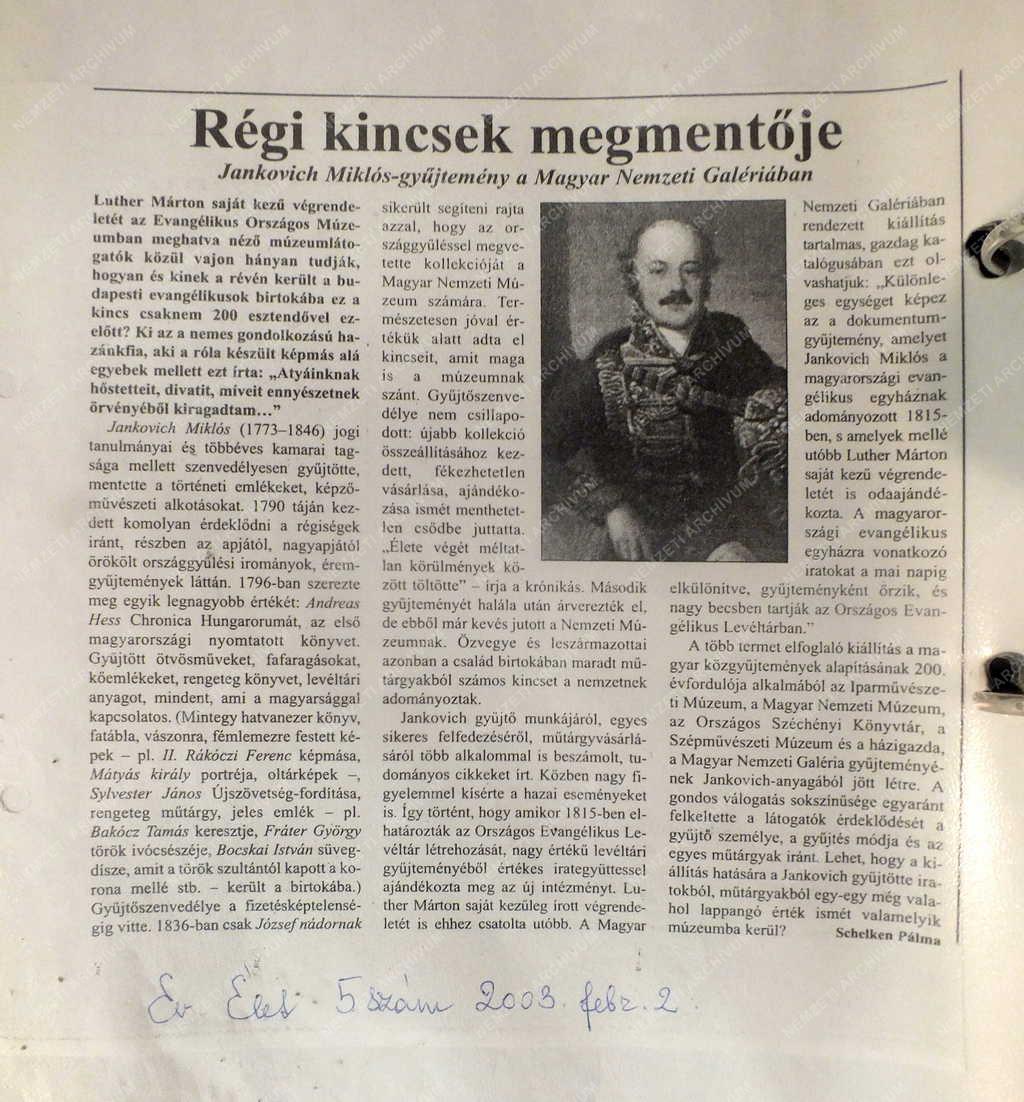 Régi kincsek megmentője
Jankovich Miklós-gyűjtemény a Magyar Nemzeti Galériában
Luther Márton saját kezű végrende-
letét az Evangélikus Országos Múze-
umban meghatva néző múzeumláto-
gatók közül vajon hányan tudják,
hogyan és kinek a révén került a bu-
dapesti evangélikusok birtokába ez a
kincs csaknem 200 esztendővel ez-
előtt? Ki az a nemes gondolkozású ha-
zánkfia, aki a róla készült képmás alá
egyebek mellett ezt írta: „Atyáinknak
hőstetteit, divatit, míveit ennyészetnek
örvényéből kiragadtam...”
Jankovich Miklós (1773–1846) jogi
tanulmányai és többéves kamarai tag-
sága mellett szenvedélyesen gyűjtötte,
mentette a történeti emlékeket, képző-
művészeti alkotásokat. 1790 táján kez-
dett komolyan érdeklődni a régiségek
iránt, részben az apjától, nagyapjától
örökölt országgyűlési irományok, érem-
gyűjtemények láttán. 1796-ban szerezte
meg egyik legnagyobb értékét: Andreas
Hess Chronica Hungarorumát, az első
magyarországi nyomtatott könyvet.
Gyűjtött ötvösműveket, fafaragásokat,
kőemlékeket, rengeteg könyvet, levéltári
anyagot, mindent, ami a magyarsággal
kapcsolatos. (Mintegy hatvanezer könyv,
fatábla, vászonra, fémlemezre festett ké-
pek – pl. II. Rákóczi Ferenc képmása,
Mátyás király portréja, oltárképek –,
Sylvester János Újszövetség-fordítása,
rengeteg műtárgy, jeles emlék – pl.
Bakócz Tamás keresztje, Fráter György
török ivócsészéje, Bocskai István süveg-
dísze, amit a török szultántól kapott a ko-
rona mellé stb. – került a birtokába.)
Gyűjtőszenvedélye a fizetésképtelensé-
gig vitte. 1836-ban csak József nádornak
sikerült segíteni rajta
azzal, hogy az or-
szággyűléssel megve-
tette kollekcióját a
Magyar Nemzeti Mú-
zeum számára. Ter-
mészetesen jóval ér-
tékük alatt adta el
kincseit, amit maga
is a múzeumnak
szánt. Gyűjtőszenve-
délye nem csillapo-
dott: újabb kollekció
összeállításához kez-
dett, fékezhetetlen
vásárlása, ajándéko-
zása ismét menthetet-
len csődbe juttatta.
„Élete végét méltat-
lan körülmények kö-
zött töltötte” – írja a krónikás. Második
gyűjteményét halála után árverezték el,
de ebből már kevés jutott a Nemzeti Mú-
zeumnak. Özvegye és leszármazottai
azonban a család birtokában maradt mű-
tárgyakból számos kincset a nemzetnek
adományoztak.
Jankovich gyűjtő munkájáról, egyes
sikeres felfedezéséről, műtárgyvásárlá-
sáról több alkalommal is beszámolt, tu-
dományos cikkeket írt. Közben nagy fi-
gyelemmel kísérte a hazai eseményeket
is. Így történt, hogy amikor 1815-ben el-
határozták az Országos Evangélikus Le-
véltár létrehozását, nagy értékű levéltári
gyűjteményéből értékes irategyüttessel
ajándékozta meg az új intézményt. Lu-
ther Márton saját kezűleg írott végrende-
letét is ehhez csatolta utóbb. A Magyar
Nemzeti Galériában
rendezett kiállítás
tartalmas, gazdag ka-
talógusában ezt ol-
vashatjuk: „Különle-
ges egységet képez
az a dokumentum-
gyűjtemény, amelyet
Jankovich Miklós a
magyarországi evan-
gélikus egyháznak
adományozott 1815-
ben, s amelyek mellé
utóbb Luther Márton
saját kezű végrende-
letét is odaajándé-
kozta. A magyaror-
szági evangélikus
egyházra vonatkozó
iratokat a mai napig
elkülönítve, gyűjteményként őrzik, és
nagy becsben tartják az Országos Evan-
gélikus Levéltárban.”
A több termet elfoglaló kiállítás a ma-
gyar közgyűjtemények alapításának 200.
évfordulója alkalmából az Iparművésze-
ti Múzeum, a Magyar Nemzeti Múzeum,
az Országos Széchényi Könyvtár, a
Szépművészeti Múzeum és a házigazda,
a Magyar Nemzeti Galéria gyűjteményé-
nek Jankovich-anyagából jött létre. A
gondos válogatás sokszínűsége egyaránt
felkeltette a látogatók érdeklődését a
gyűjtő személye, a gyűjtés módja és az
egyes műtárgyak iránt. Lehet, hogy a ki-
állítás hatására a Jankovich gyűjtötte ira-
tokból, műtárgyakból egy-egy még vala-
hol lappangó érték ismét valamelyik
múzeumba kerül?
Schelken Pálma
Ev. Élet 5 szám 2003. febr. 2.
NEMZETI ARCHÍVUM